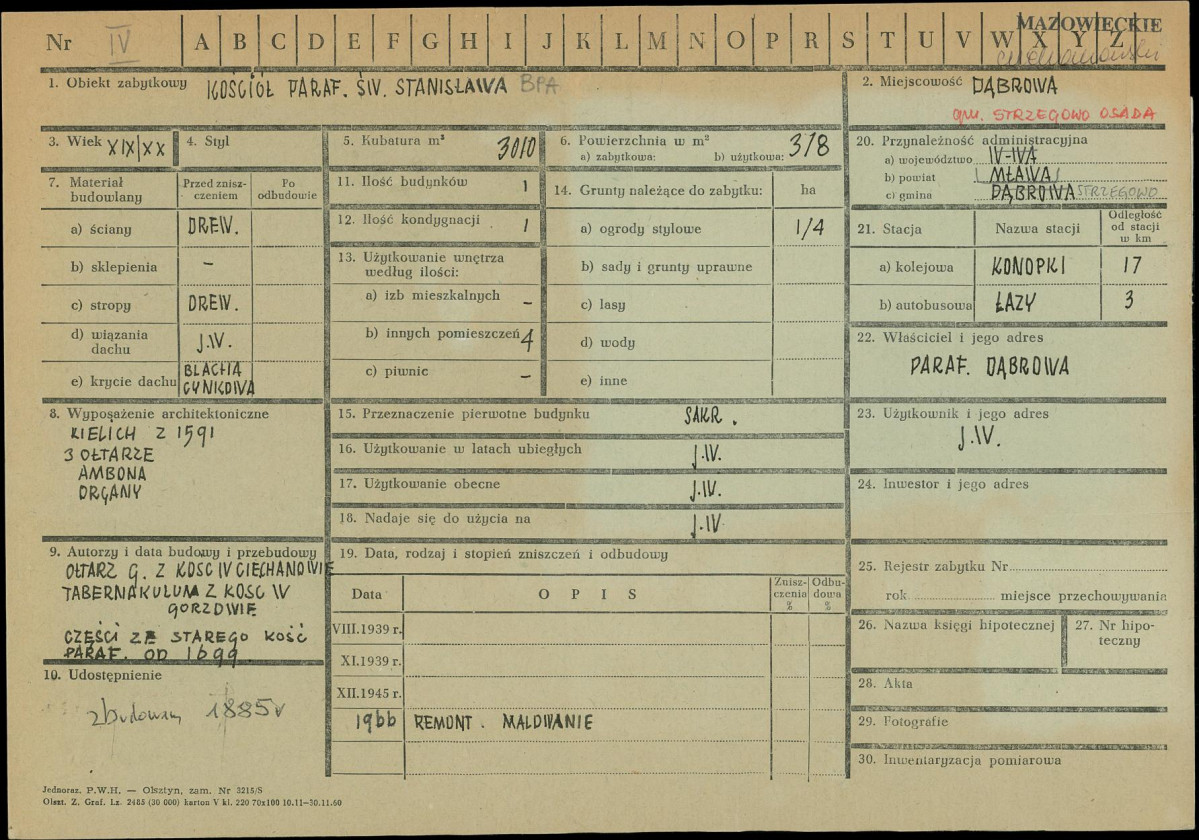 MAZOWIECKIE
Nr IV A B C D E F G H I J K L M N O P R S T U V W X Y Z
ciechanowski
1. Obiekt zabytkowy KOŚCIÓŁ PARAF. ŚW. STANISŁAWA BPA
2. Miejscowość DĄBROWA
gm. STRZEGOWO OSADA
3. Wiek XIX/XX
4. Styl
5. Kubatura m³ 3010
6. Powierzchnia w m²
a) zabytkowa: b) użytkowa: 318
20. Przynależność administracyjna
a) województwo W-WA
b) powiat MŁAWA
c) gmina DĄBROWA STRZEGOWO
7. Materiał budowlany
Przed zniszczeniem
Po odbudowie
a) ściany DREW.
b) sklepienia –
c) stropy DREW.
d) wiązania dachu J.W.
e) krycie dachu BLACHA CYNKOWA
11. Ilość budynków 1
12. Ilość kondygnacji 1
13. Użytkowanie wnętrza
według ilości:
a) izb mieszkalnych –
b) innych pomieszczeń 4
c) piwnic –
14. Grunty należące do zabytku: ha
a) ogrody stylowe 1/4
b) sady i grunty uprawne
c) lasy
d) wody
e) inne
21. Stacja Nazwa stacji Odległość od stacji w km
a) kolejowa KONOPKI 17
b) autobusowa ŁAZY 3
22. Właściciel i jego adres
PARAF. DĄBROWA
8. Wyposażenie architektoniczne
KIELICH Z 1591
3 OŁTARZE
AMBONA
ORGANY
15. Przeznaczenie pierwotne budynku SAKR.
16. Użytkowanie w latach ubiegłych J.W.
17. Użytkowanie obecne J.W.
18. Nadaje się do użycia na J.W
23. Użytkownik i jego adres
J.W.
24. Inwestor i jego adres
9. Autorzy i data budowy i przebudowy
OŁTARZ G. Z KOSC W CIECHANOWIE
TABERNAKULUM Z KOSC W
GORZOWIE
CZĘŚCI ZE STAREGO KOŚĆ
PARAF. OD 1699
10. Udostępnienie
zbudowany 1885r
19. Data, rodzaj i stopień zniszczeń i odbudowy
Data OPIS Zniszczenia % Odbudowa %
VIII.1939 r.
XI.1939 r.
XII.1945 r.
1966 REMONT. MALOWANIE
25. Rejestr zabytku Nr
rok miejsce przechowywania
26. Nazwa księgi hipotecznej
27. Nr hipoteczny
28. Akta
29. Fotografie
30. Inwentaryzacja pomiarowa
Jednoraz. P.W.H. — Olsztyn, zam. Nr 3215/S
Olszt. Z. Graf. Lz. 2485 (30 000) karton V kl. 220 70x100 10.11—30.11.60